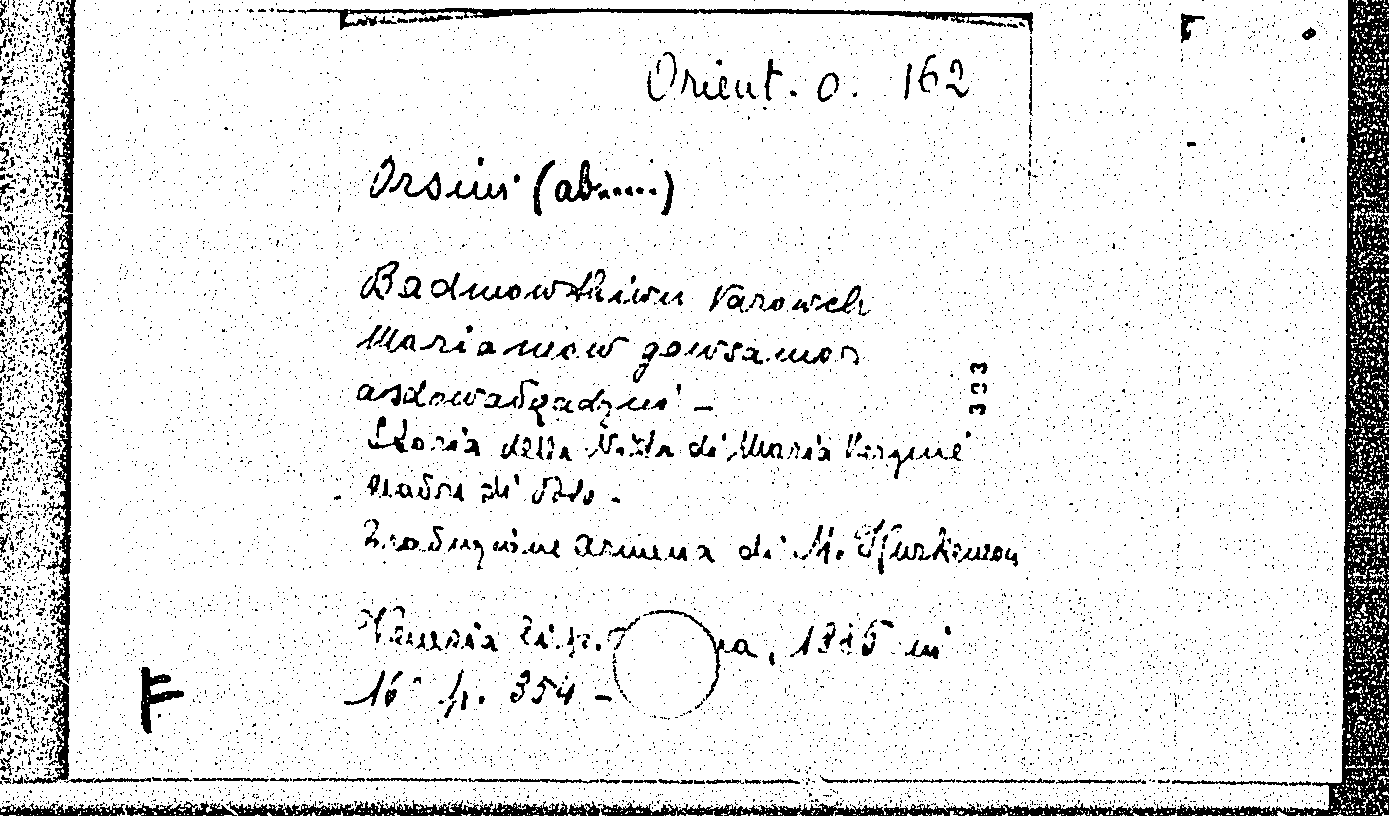 Orient. O. 162
Orsini (ab.....)
Badmowthiwn varowch
Mariamow gowsamor
asdowadzadzni -
333
Storia della Vita di Maria Vergine
madre di Dio -
Traduzione armena di M.
Venezia Tip. na, 1885 in
16° p. 354 -
F